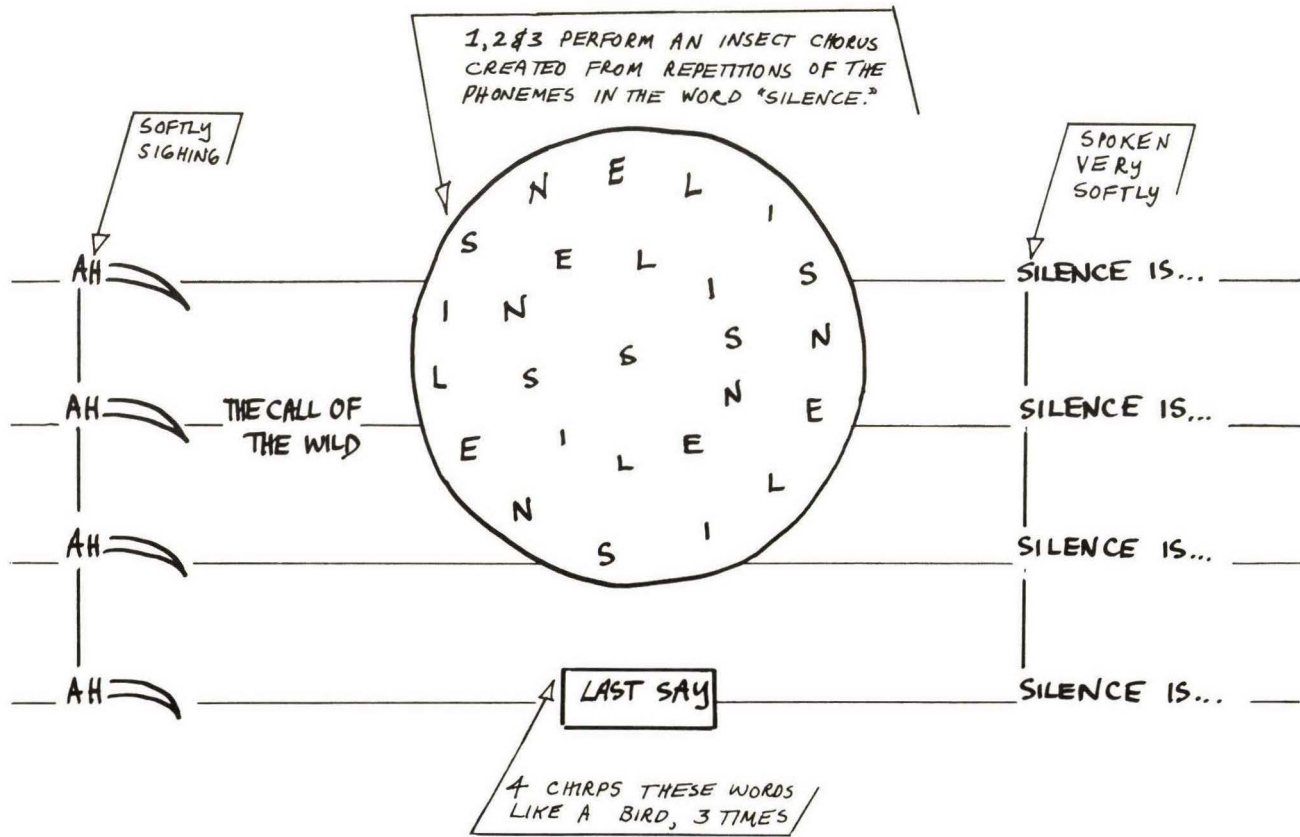 1,2&3 PERFORM AN INSECT CHORUS
CREATED FROM REPETITIONS OF THE
PHONEMES IN THE WORD "SILENCE."
SOFTLY
SIGHING
SPOKEN
VERY
SOFTLY
N E L I
S E L S
I N I
S S N
L S N E
E I L E
N L
S I
AH
AH
AH
AH
THE CALL OF
THE WILD
SILENCE IS...
SILENCE IS...
SILENCE IS...
SILENCE IS...
LAST SAY
4 CHIRPS THESE WORDS
LIKE A BIRD, 3 TIMES